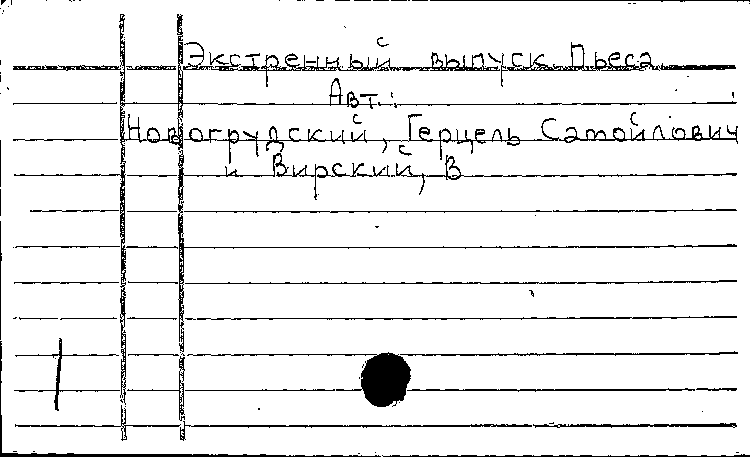 Экстренный выпуск. Пьеса
Авт.:
Новогрудский, Герцель Самойлович
и Вирский, В